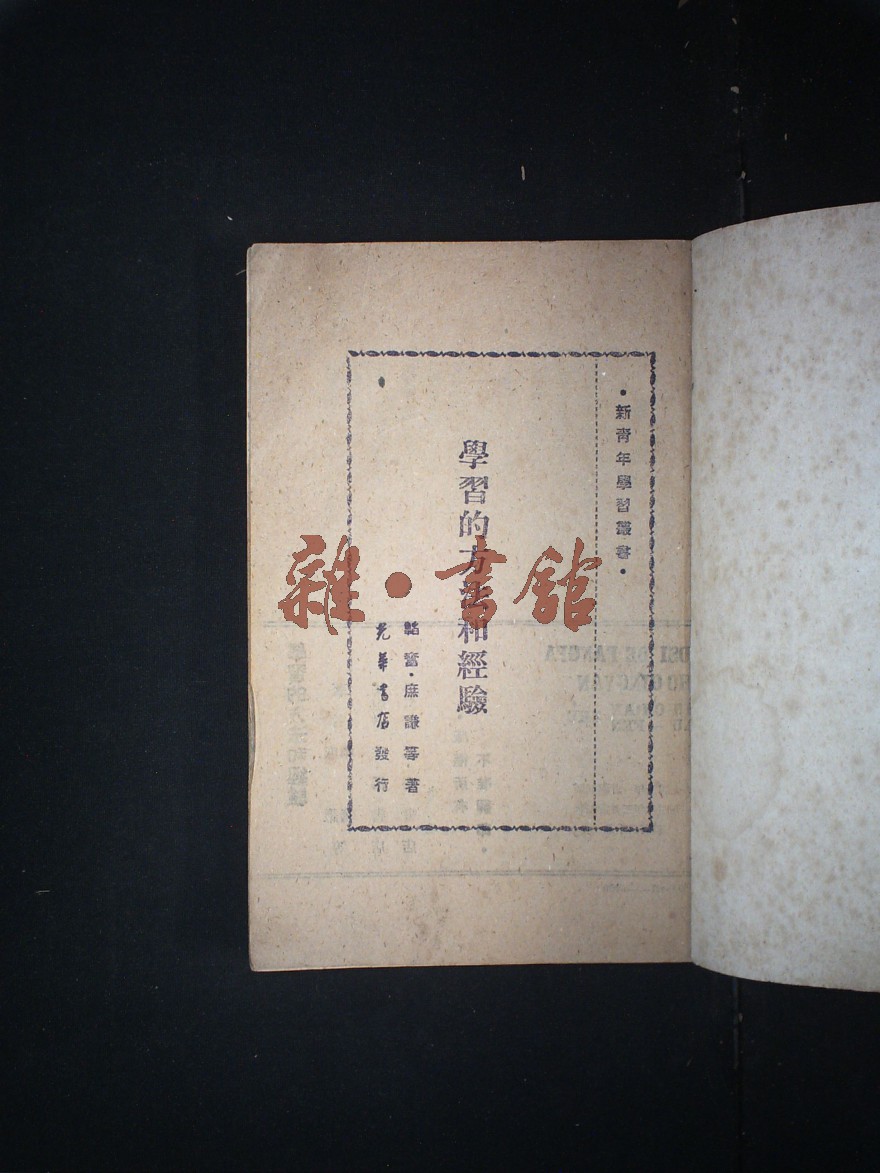 •新青年學習叢書•
學習的方法和經驗
韜奮•庶謙等著
光華書店發行
雜•書館